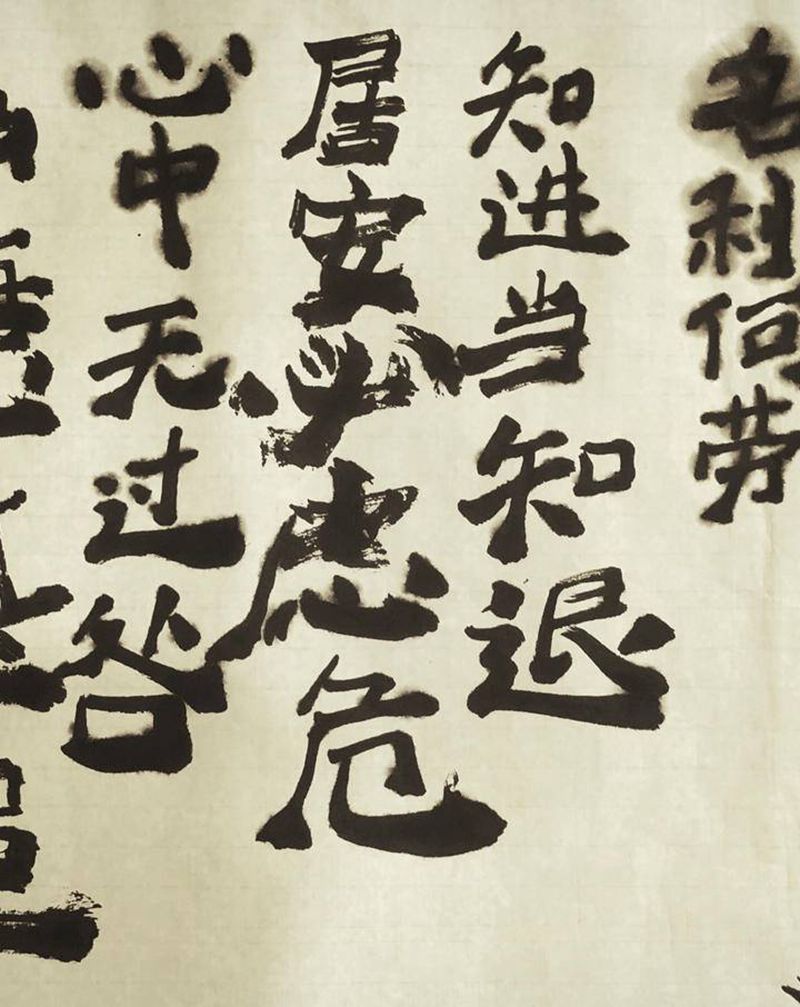 名利何劳
知进当知退
居安必虑危
心中无过咎